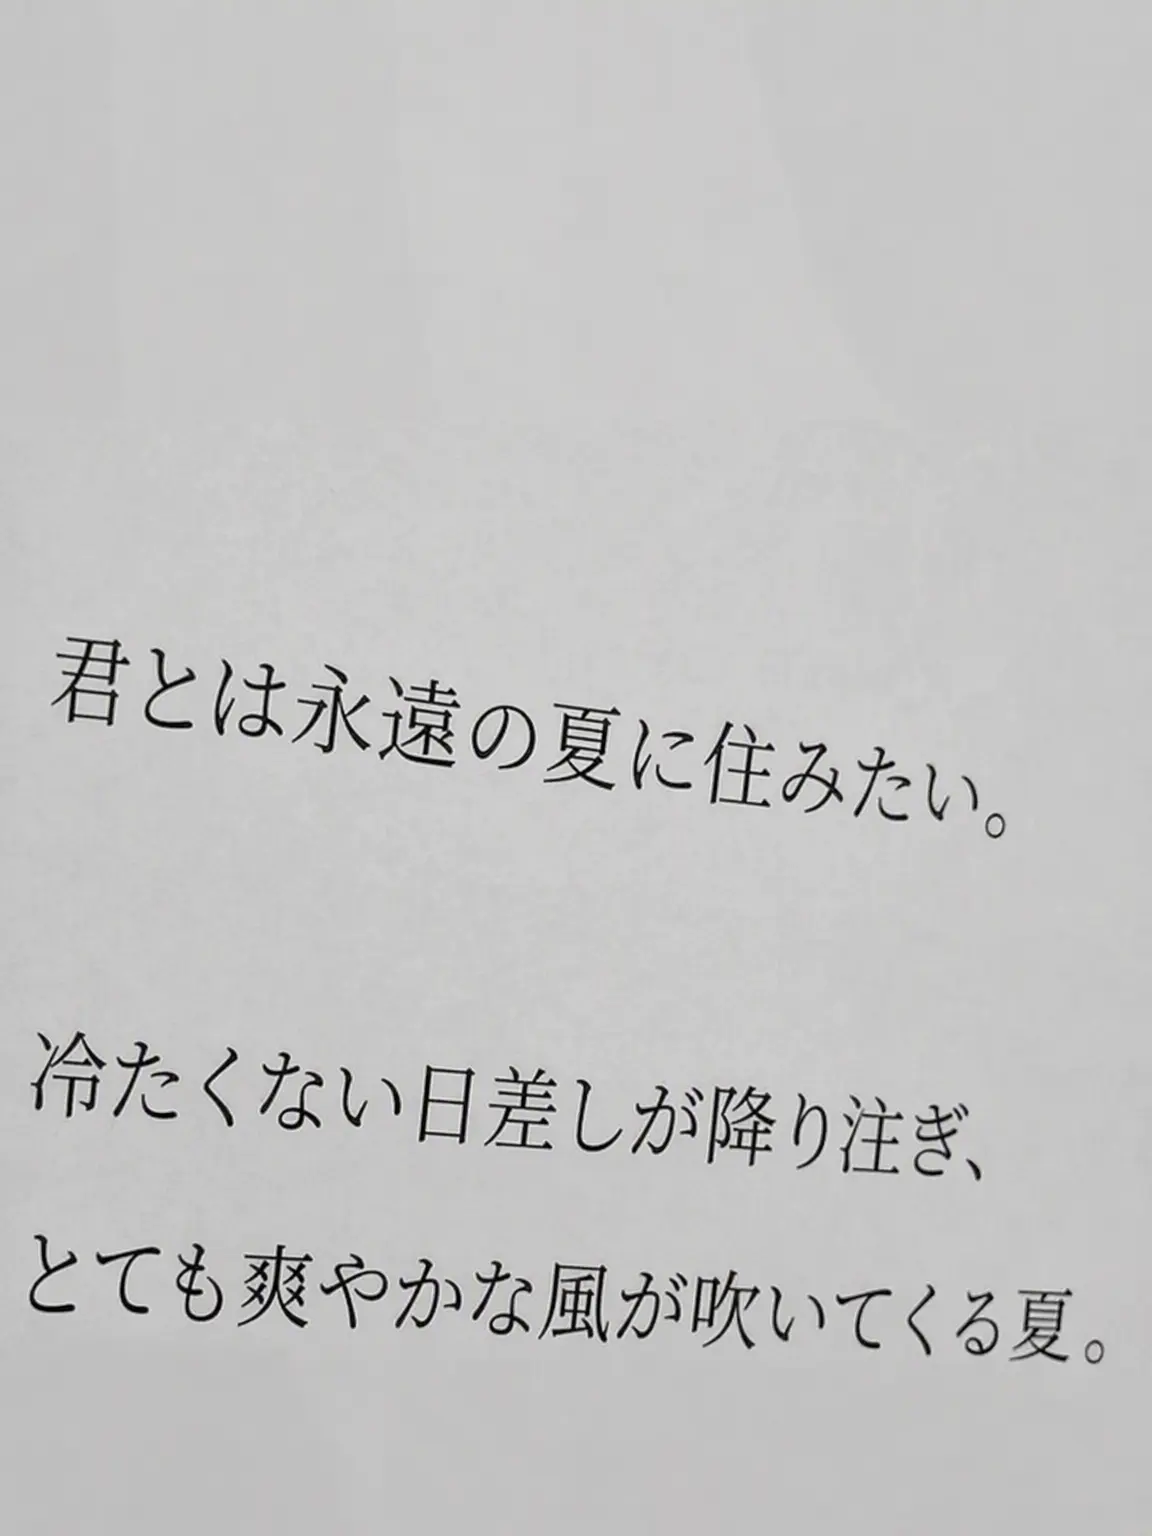 君とは永遠の夏に住みたい。
冷たくない日差しが降り注ぎ、
とても爽やかな風が吹いてくる夏。